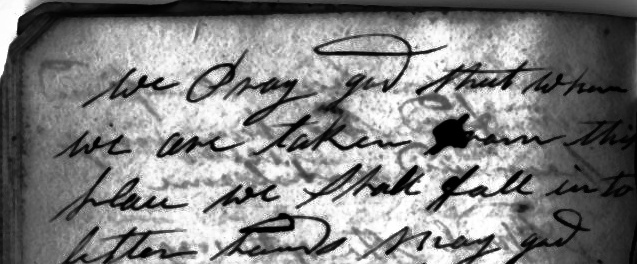 we Pray god that when
we are taken from this
place we Shall fall into
better hands may god